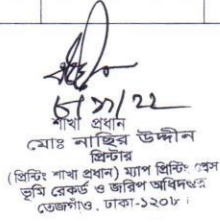 ১৫/১১/২২
শাখা প্রধান
মোঃ নাছির উদ্দীন
প্রিন্টার
(প্রিন্টিং শাখা প্রধান) ম্যাপ প্রিন্টিং প্রেস
ভূমি রেকর্ড ও জরিপ অধিদপ্তর
তেজগাঁও, ঢাকা-১২০৮।